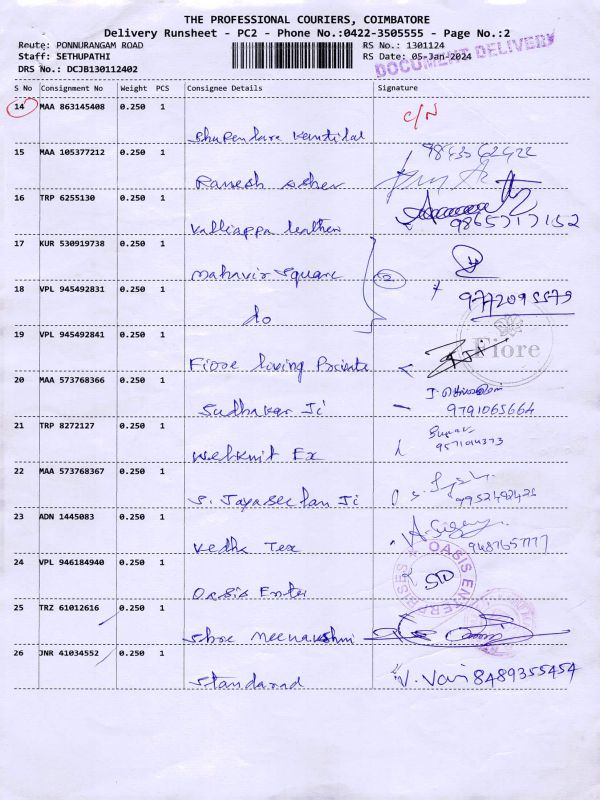 THE PROFESSIONAL COURIERS, COIMBATORE
Delivery Runsheet - PC2 - Phone No.:0422-3505555 - Page No.:2
Route: PONNURANGAM ROAD
RS No.: 1301124
Staff: SETHUPATHI
RS Date: 05-Jan-2024
DRS No.: DCJB130112402
DOCUMENT DELIVERY
S No Consignment No Weight PCS Consignee Details Signature
14 MAA 863145408 0.250 1
C/N
15 MAA 105377212 0.250 1
Ramesh
16 TRP 6255130 0.250 1
Valliappa leather 9865717152
17 KUR 530919738 0.250 1
Mahavir Square 2
18 VPL 945492831 0.250 1
do 9772095579
19 VPL 945492841 0.250 1
Fiore living Private
Fiore
20 MAA 573768366 0.250 1
Sudhakar Ji 9791065664
21 TRP 8272127 0.250 1
Webknit Ex
22 MAA 573768367 0.250 1
S. Jayaseelan Ji
23 ADN 1445083 0.250 1
Vedha Tex
24 VPL 946184940 0.250 1
Oasis Enter
OASIS ENTERPRISES
25 TRZ 61012616 0.250 1
Shree Meenakshmi
26 JNR 41034552 0.250 1
Standarad V. Vani 8489355454